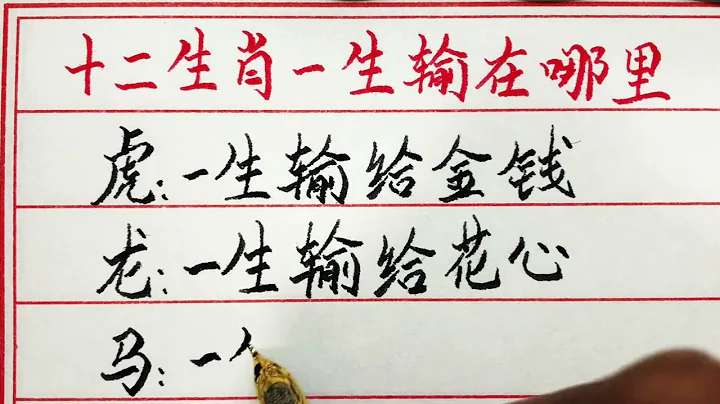 十二生肖一生输在哪里
虎:一生输给金钱
龙:一生输给花心
马:一